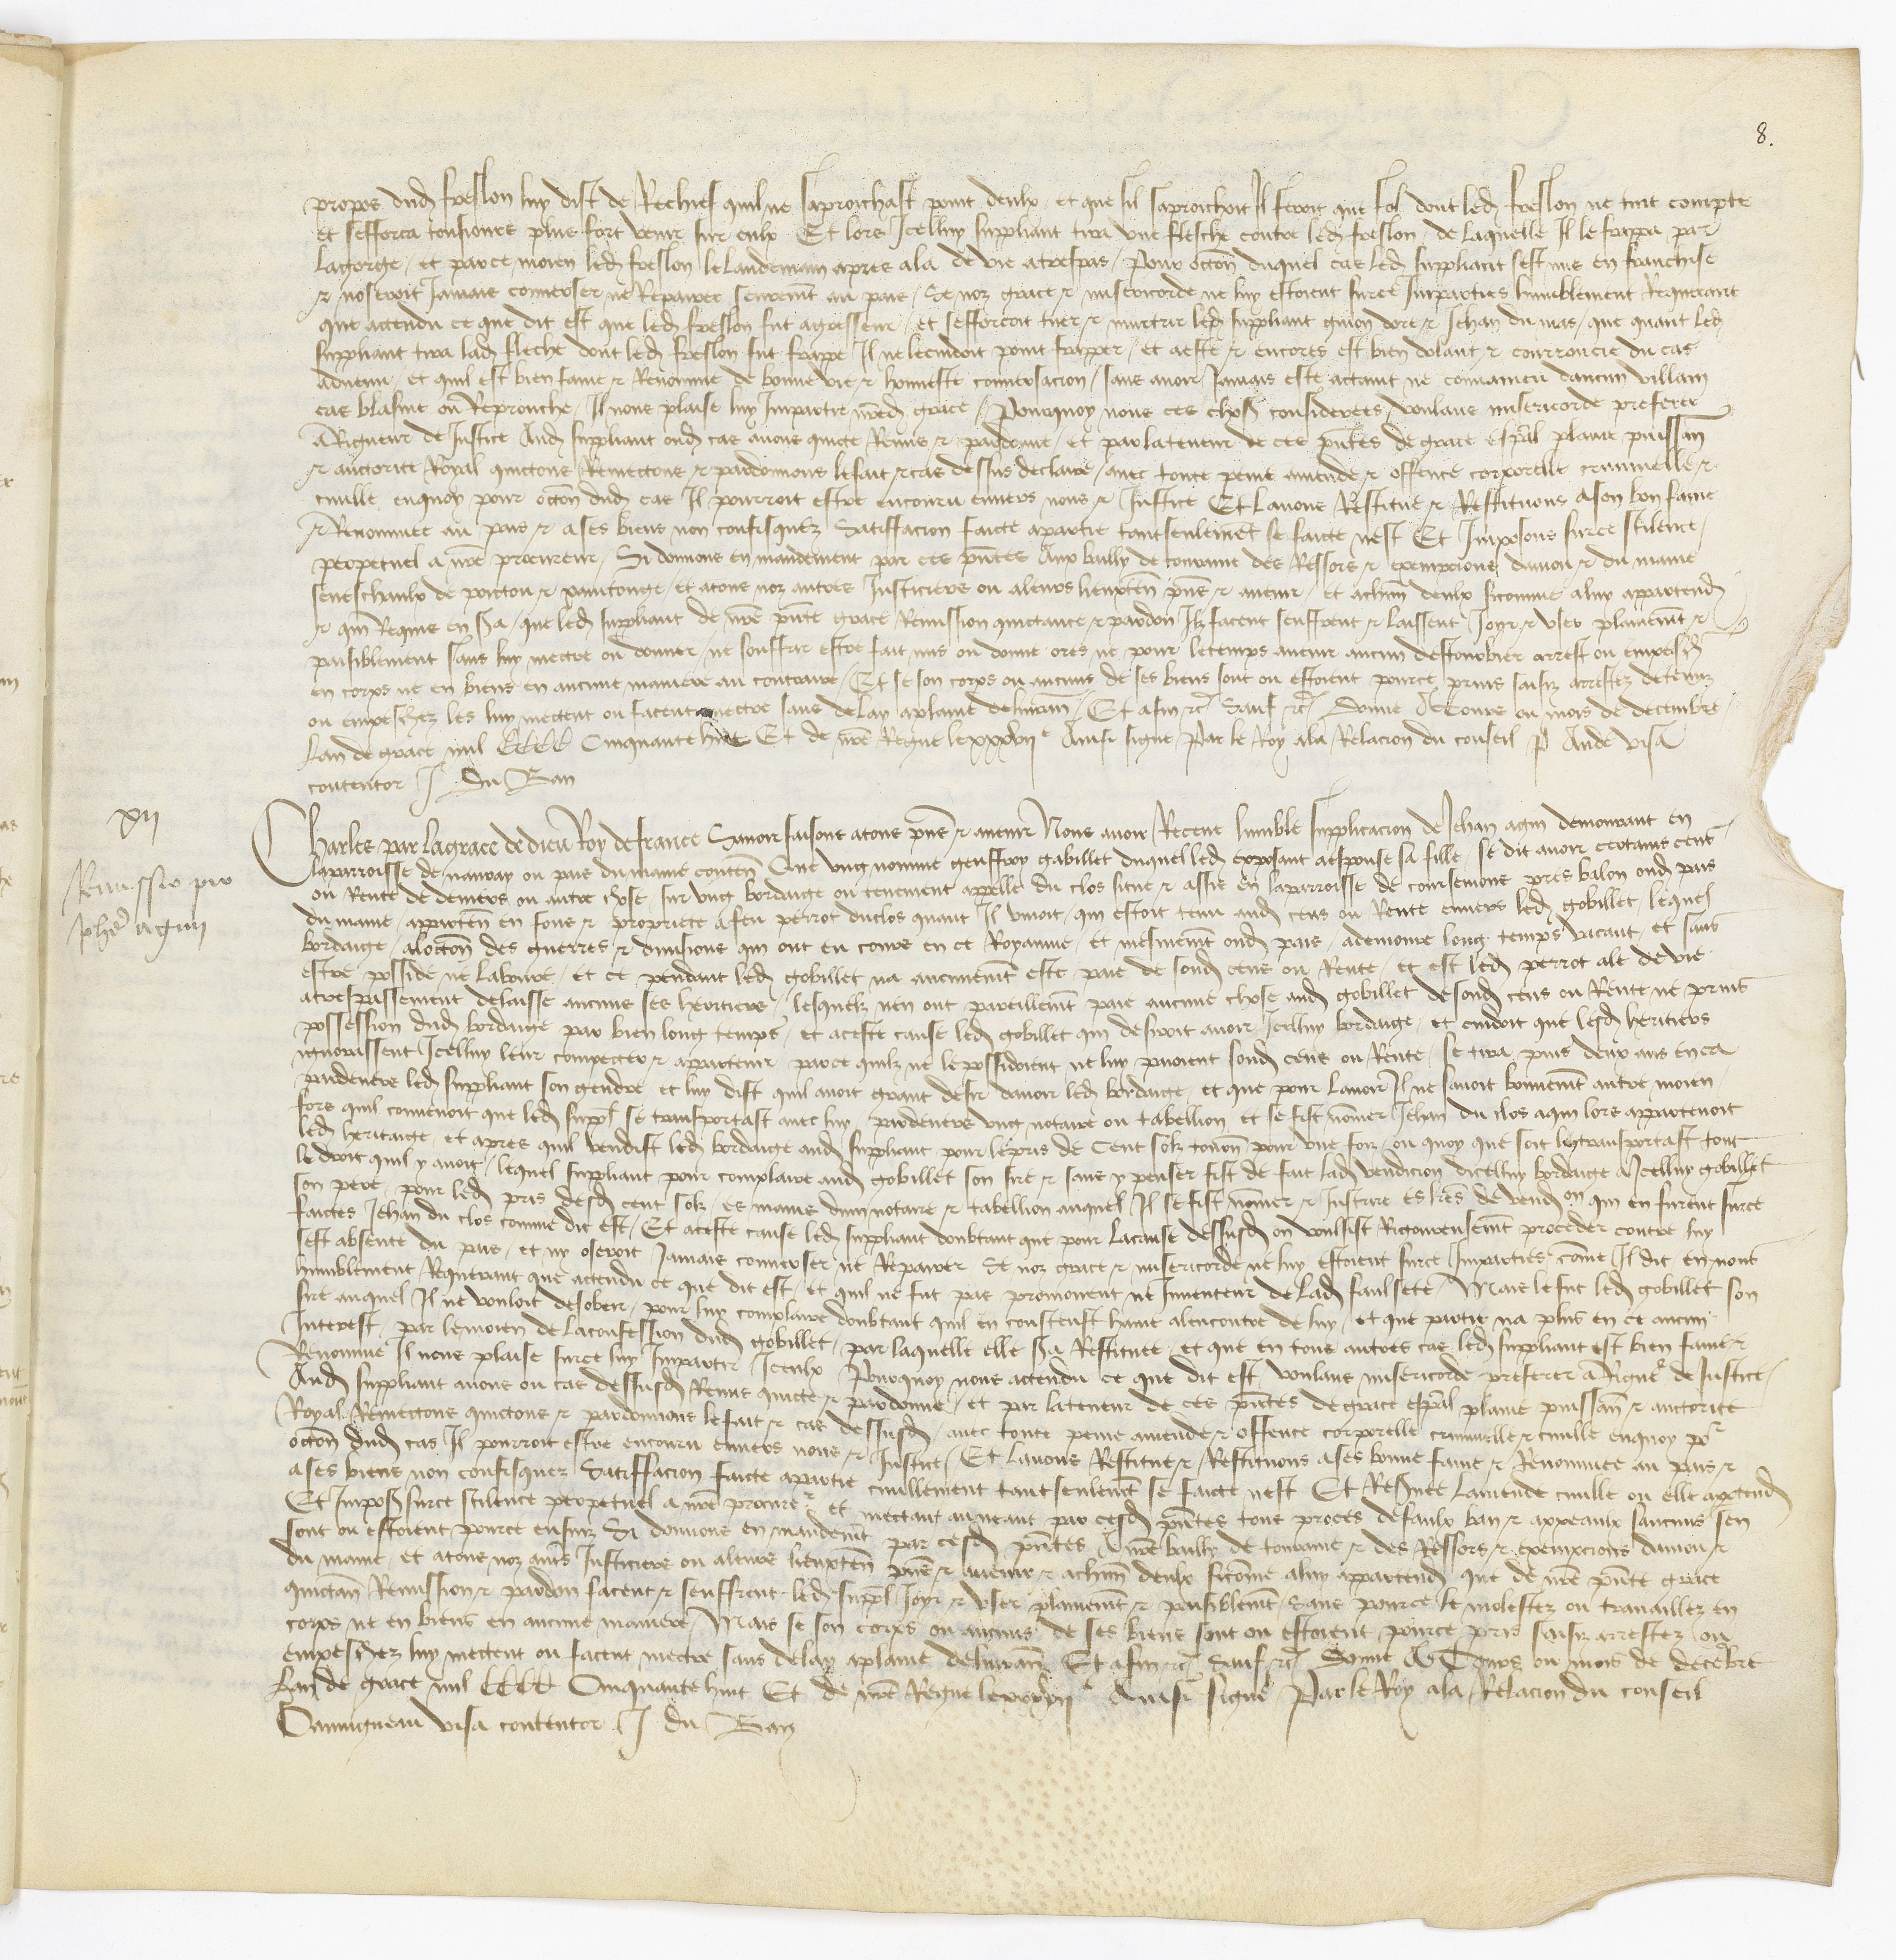 8.
propos dud freslon luy dist de Rechief quil ne saproichast point deulx et que sil saproichoit Il feroit que fol dont led freslon ne tint compte
et sefforca tousiours plus fort venir sur eulx Et lors Icelluy suppliant tira une flesche contre led freslon de laquelle Il le frappa par
lagorge et parce moien led freslon le landemain apres ala de vie a trespas Pour occon duquel cas led suppliant sest mis en franchise
et noseroit Iamais converser ne Repairer seurement au pais Se noz grace et misericorde ne luy estoient surce Imparties humblement Requerant
que actendu ce que dit est que led freslon fut agresseur et sefforcoit tuer et murtrir led suppliant guion dore et Jehan du mas que quant led
suppliant tira lad fleche dont led freslon fut frappe Il ne lecuidoit point frapper et aeste et encores est bien dolant et courroucie du cas
advenu et quil est bien fame et Renomme de bonne vie et honneste conversacion sans avoir Iamais este actaint ne convaincu daucun villain
cas blasme ou Reprouche Il nous plaise luy Impartir nred grace Pourquoy nous ces chos considerees voulans misericorde preferer
a Rigueur de Justice Aud suppliant oud cas avons quicte Remis et pardonne et par lateneur de ces pntes de grace espal plaine puissan
et auctorite Royal quictons Remectons et pardonnons lefait et cas dessus declaire avec toute peine amende et offence corporelle criminelle et
civille enquoy pour occon dud cas Il pourroit estre encouru envers nous et Justice Et lavons Restitue et Restituons ason bon fame
et Renommee au pais et a ses biens non confisquez Satisfacion faicte apartie tantseulemet se faicte nest Et Imposons surce scilence
perpetuel a nre procureur Si donnons en mandement par ces pntes Aux bailly de touraine des Ressors et exempcions danjou et du maine
seneschaulx de poictou et xainctonge et atous noz autres Justiciers ou aleurs lieuxten pns et avenir et achun deulx sicomme aluy appartend
et qui Requis en sa que led suppliant de nre pnte grace Remission quictance et pardon Ilz facent seuffrent et laissent Joyr et user plainemt et
paisiblement sans luy mectre ou donner ne souffrir estre fait mis ou donne ores ne pour letemps avenir aucun destourbier arrest ou empesch
en corps ne en biens en aucune maniere au contraire Et se son corps ou aucuns de ses biens sont ou estoient pource prins saisiz arrestez detenuz
ou empeschez les luy mectent ou facent mectre sans delay aplaine delivran Et afin etc Sauf etc Donne A Tours ou mois de decembre
Lan de grace mil CCCC Cinquante huit Et de nre Regne le xxxvii e Ainsi signe Par le Roy ala Relacion du conseil P Ande Visa
contentor J Du Ban
xii
Remissio pro
Johe agun
Charles par lagrace de dieu Roy de france Savoir faisons atous pns et avenir Nous avoir Receue lumble supplicacion de Jehan agin demourant en
laparroisse de nauvay ou pais du maine conten Que ung nomme geuffroy gabillet duquel led exposant aespouse sa fille se dit avoir certains cent
ou Rente de deniers ou autre chose sur ung bordaige ou tenement appelle du clos situe et assis en laparroisse de coursemons pres balon oud pais
du maine apparten en fons et propriete afeu perrot duclos quant Il vivoit qui estoit tenu aud cens ou Rente envers led gobillet lequel
bordaige alocon des guerres et divisions qui ont eu cours en ce Royaume et mesmemt oud pais ademoure long temps vacant et sans
estre posside ne laboure et ce pendant led gobillet na aucunemt este paie de sond cens ou Rente et est led perrot ale de vie
atrespassement delaisse aucuns ses heritiers lesquelz nen ont pareillemt paie aucune chose aud gobillet desond cens ou Rente ne prins
possession dud bordaige par bien long temps et aceste cause led gobillet qui desiroit avoir Icelluy bordaige et cuidoit que lesd heritiers
ignorassent Icelluy leur compecter et appartenir parce quilz ne le possidoient ne luy paioient sond cens ou Rente se tira puis deux ans enca
pardevers led suppliant son gendre et luy dist quil avoit grant desir davoir led bordaige et que pour lavoir Il ne savoit bonnemt autre moien
fors quil convenoit que led suppl se transportast avec luy pardevers ung notaire ou tabellion et se fist nomer Jehan du clos aqui lors appartenoit
led heritaige et apres quil vendist led bordaige aud suppliant pour lepris de Cent solz tourn pour une foiz ou quoy que soit le transportast tout
le droit quil y avoit lequel suppliant pour complaire aud gobillet son sire et sans y penser fist de fait lad vendicion dicelluy bordaige a Icelluy gobillet
son pere pour led pris desd cent solz es mains dun notaire et tabellion auquel Il se fist nomer et Inscrire es lres de vend on qui en furent surce
faictes Jehan du clos comme dit est Et aceste cause led suppliant doubtant que pour lacause dessusd on voulsist Rigoureusemt proceder contre luy
sest absente du pais et ny oseroit Jamais converser ne Repairer Se noz grace et misericorde ne luy estoient surce Imparties comme Il dit en nous
humblement Requerant que actendu ce que dit est et quil ne fut pas promouvent ne Inventeur de lad faulsete Mais le fut led gobillet son
sire auquel Il ne vouloit desobeir pour luy complaire doubtant quil en conceust haine alencontre de luy et que partie na plus en ce aucun
Interest par lemoien de laconfession dud gobillet par laquelle elle sa Restituee et que en tous autres cas led suppliant est bien fame et
Renomme Il nous plaise surce luy Impartir Iceulx Pourquoy nous actendu ce que dit est voulans misericorde preferer a Rigue de Justice
Aud suppliant avons ou cas dessusd Remis quicte et pardonne et par lateneur de ces pntes de grace espal plaine puissan et auctorite
Royal Remectons quictons et pardonnons lefait et cas dessusd avec toute peine amende et offence corporelle criminelle et civille enquoy por
occon dud cas Il pourroit estre encouru envers nous et Justice Et lavons Restitue et Restituons ases bonne fame et Renommee au pais et
ases biens non confisquez Satisfacion faicte apartie civillement tantseulemt se faicte nest Et Reservee lamende civille ou elle aptend
Et Impos surce scilence perpetuel a nre procurer et mectant auneant par cesd pntes tous proces defaulx ban et appeaulx saucuns sen
sont ou estoient pource ensuiz Si donnons en mandemt par cesd pntes A nre bailly de touraine et des Ressors et exempcions danjou et
du maine et atous noz autres Justiciers ou aleurs lieuxten pns et avenir et achun deulx sicomme aluy appartend que de nre pnte grace
quictan Remission et pardon facent et seuffrent led suppl Joyr et user plainemt et paisiblemt Sans pource le molester ou travaillez en
corps ne en biens en aucune maniere Mais se son corps ou aucuns de ses biens sont ou estoient pource pris saisiz arrestez ou
empeschez luy mectent ou facent mectre sans delay aplaine delivran Et afin etc Sauf etc Donne A Tours ou mois de decebre
Lan de grace mil CCCC Cinquante huit Et de nre Regne le xxxvii e Ainsi signe Par le Roy ala Relacion du conseil
Damigneau Visa contentor J du Ban